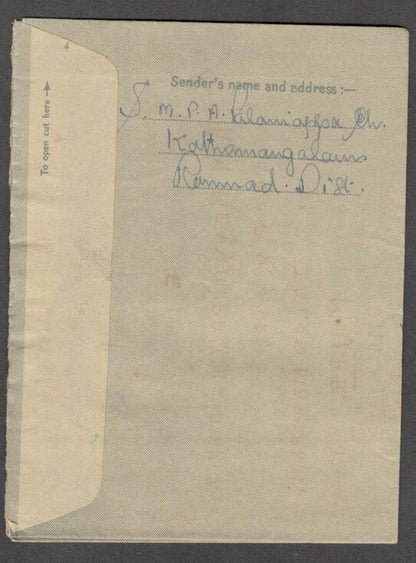 Sender's name and address:—
S. M. P. A. Palaniappa Ch.
Kothamangalam
Ramnad. Dist.
To open cut here →